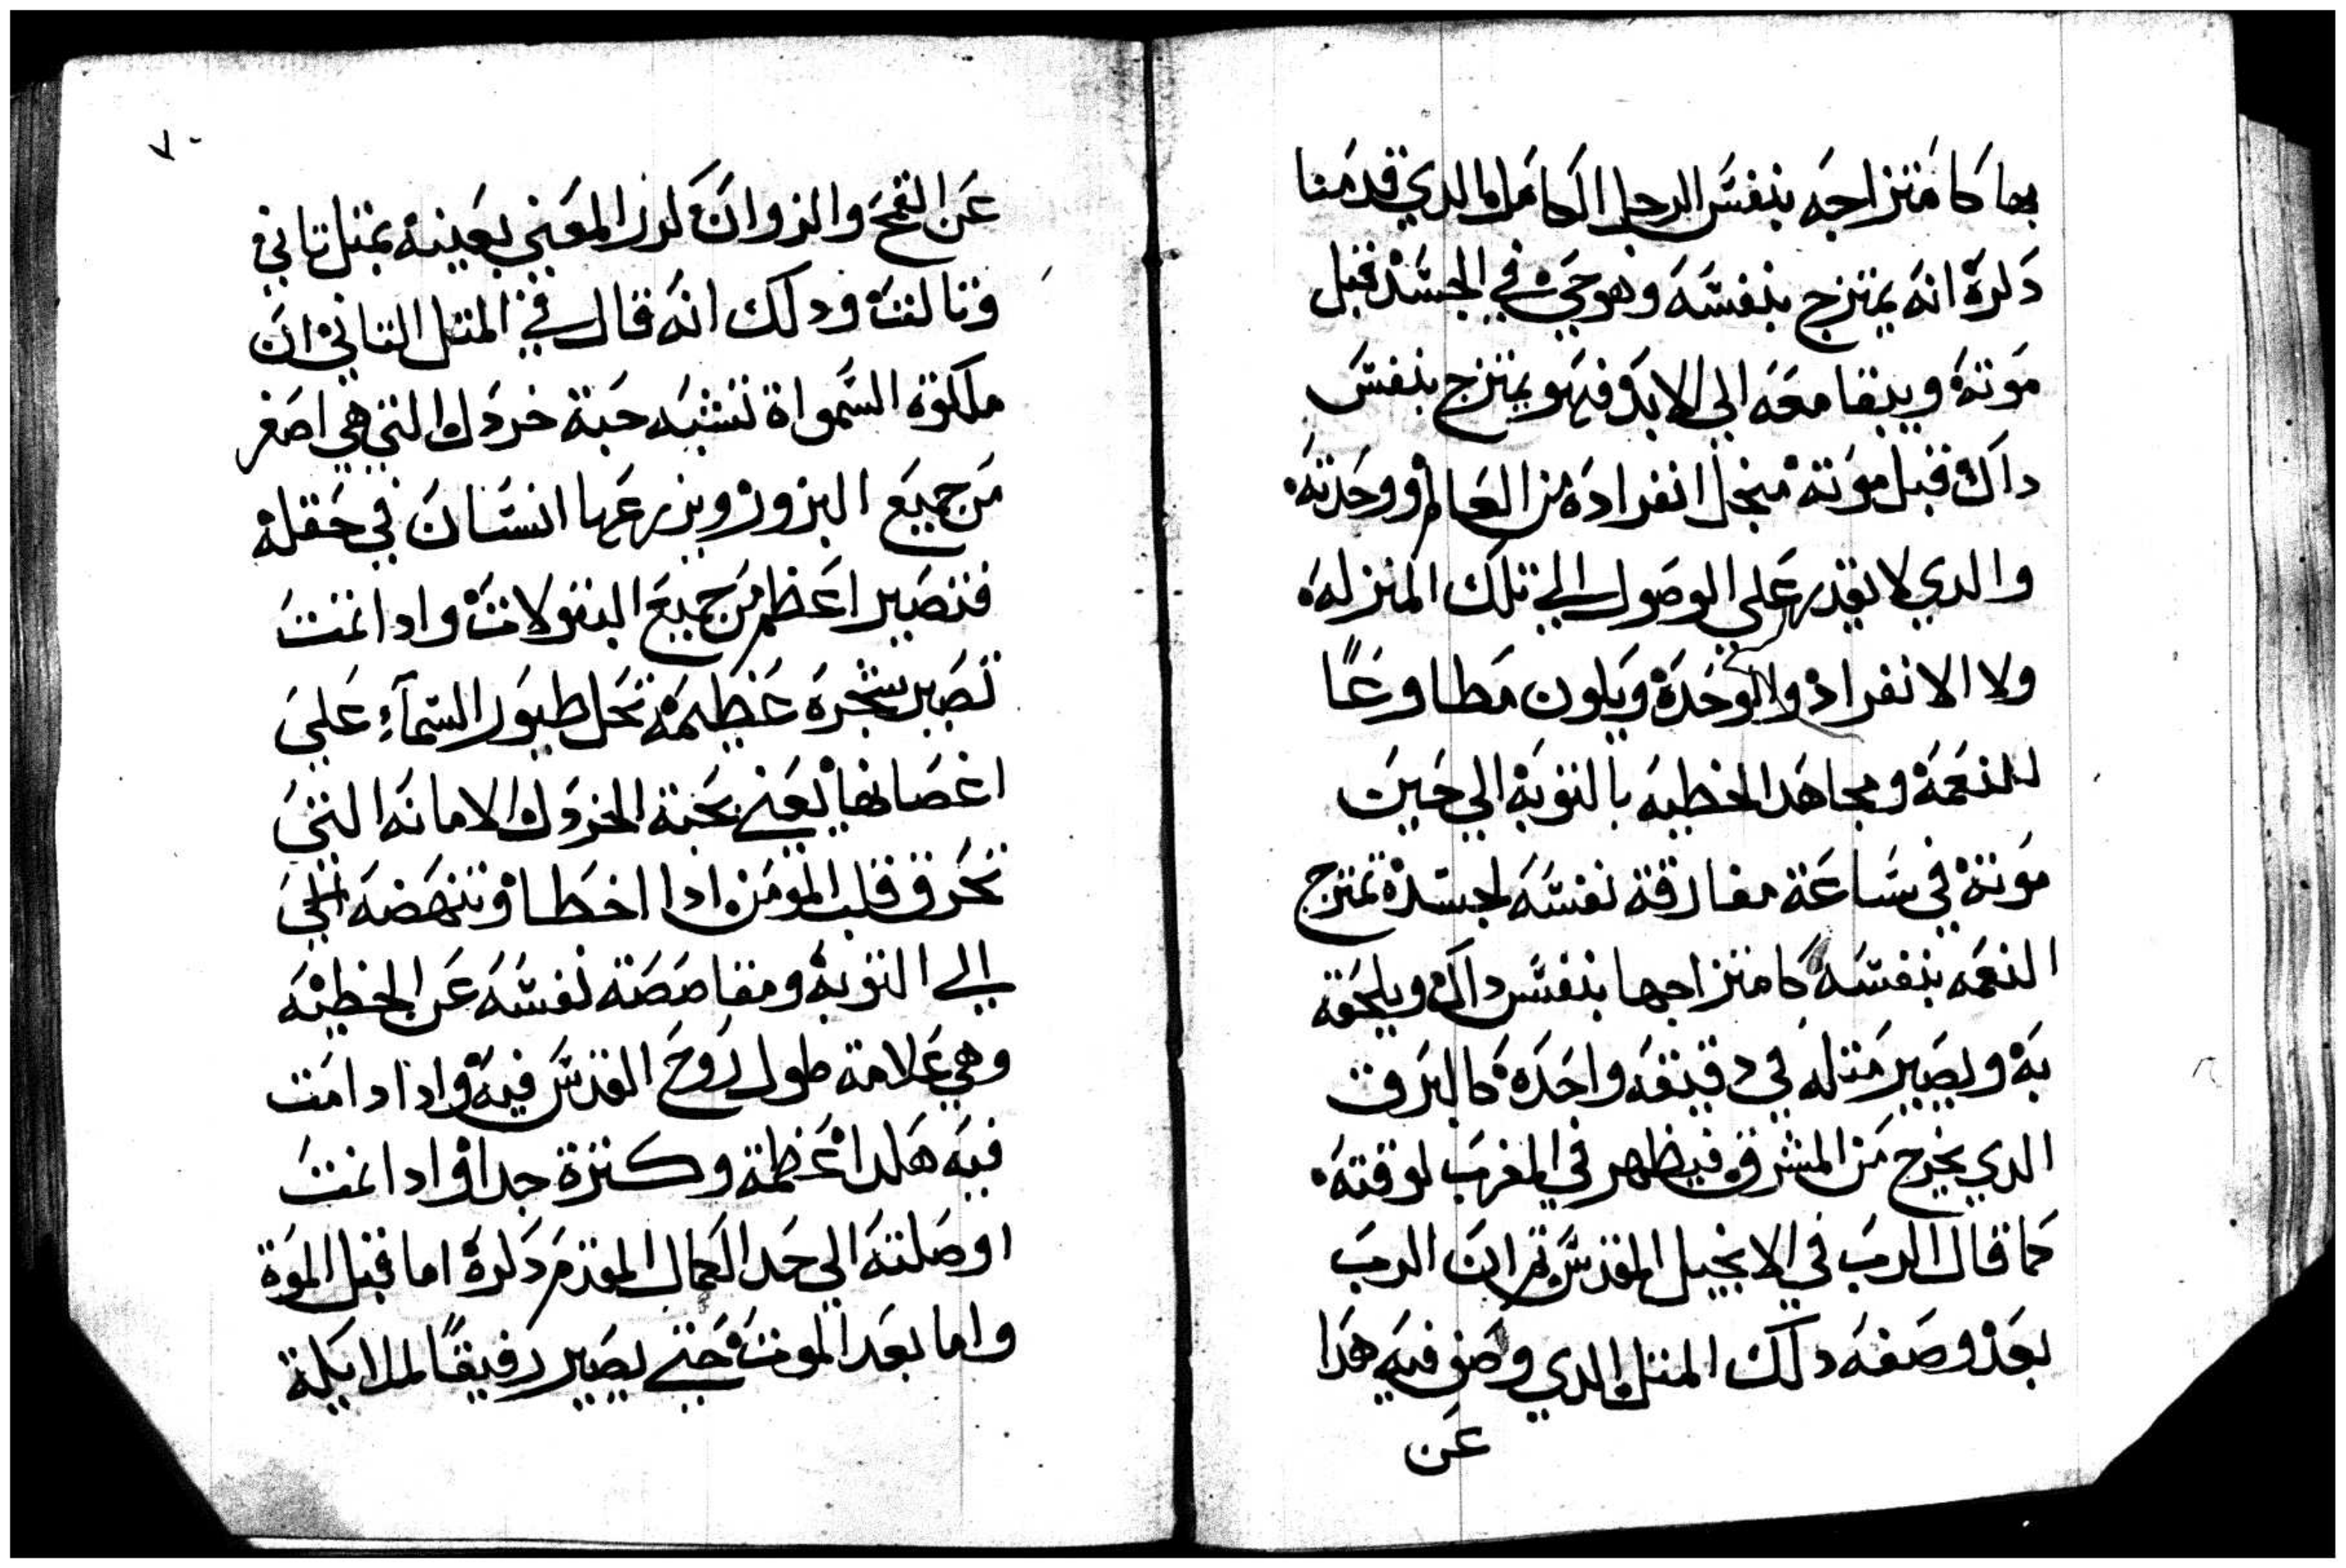 بها كامتزاجه بنفس الرجل الكامل الدي قدمنا
دكره انه يمتزج بنفسه وهو حي في الجسد قبل
موته ويبقا معه الي الابد فهو يمتزج بنفس
داك قبل موته منجل انفراده من العالم ووحدته
والدي لا يقدر علي الوصول الي تلك المنزله
ولا الانفراد والوحده ويكون مطاوعًا
للنعمه ومجاهد الخطيه بالتوبه الي حين
موته في ساعة مفارقة نفسه لجسده تمتزج
النعمه بنفسه كامتزاجها بنفس داك ويلحقه
به ويصير متله في دقيقه واحده كالبرق
الدي يخرج من المشرق فيظهر في المغرب لوقته
كما قال الرب في الانجيل المقدس تم ان الرب
بعد وصفه دلك المتل الدي وصف فيه هدا
عن
٧٠
عن القمح والزوان كرر المعني بعينه بمتل تاني
وتالت ودلك انه قال في المتل التاني ان
ملكوة السمواة تشبه حبة خردل التي هي اصغر
من جميع البزور ويزرعها انسان في حقله
فتصير اعظم من جميع البقولات وادا نمت
تصير شجره عظيمه تحل طيور السمآء علي
اغصانها يعني بحبة الخردل الامانه التي
تحرق قلب المومن ادا اخطا وتنهضه الي
الي التوبه ومقاصصة نفسه عن الخطيه
وهي علامة حلول روح القدس فيه وادا دامت
فيه هكدا عظمة وكترة جدا وادا نمت
اوصلته الي حد الكمال المقدم دكره اما قبل الموة
واما بعد الموت حتي يصير رفيقًا لملايكة